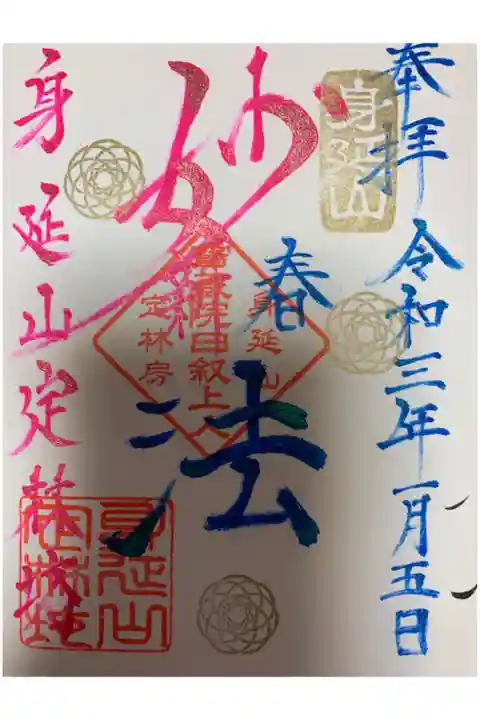 奉拝 令和三年一月五日
身延山
妙法
春
身延山
日叙上人
定林房
身延山定林坊
身延山
定林坊